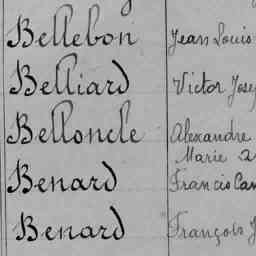 Bellebon Jean Louis
Belliard Victor Jose
Belloncle Alexandre
Marie
Benard Francis
Benard François